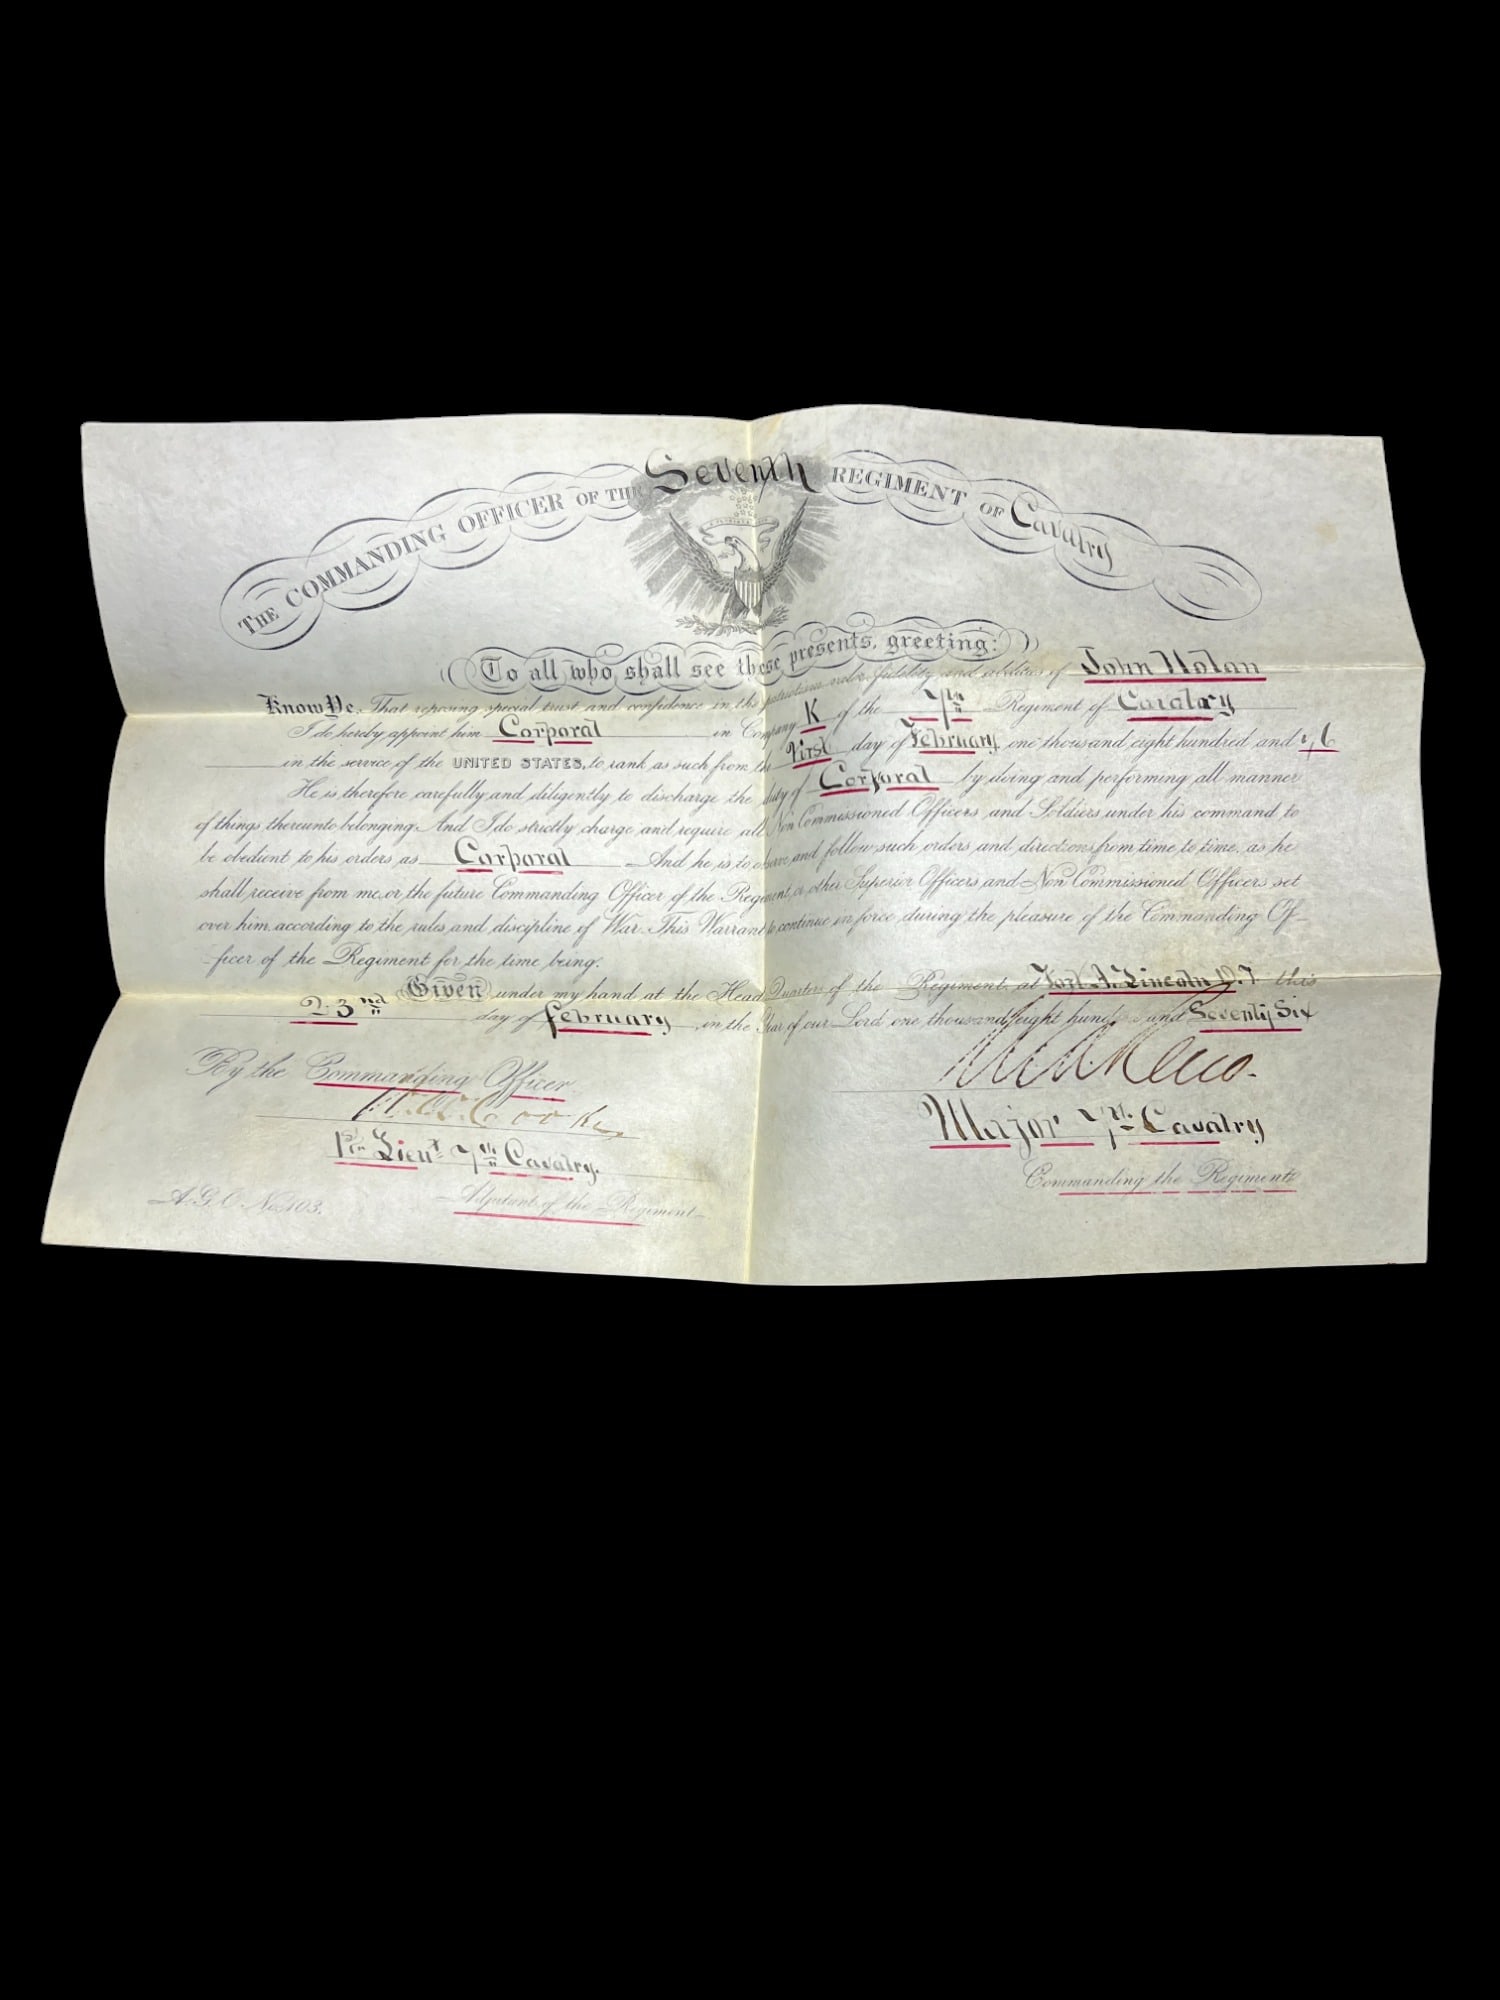 THE COMMANDING OFFICER OF THE Seventh REGIMENT OF Cavalry
To all who shall see these presents, greeting:
Know Ye, That reposing special trust and confidence in the patriotism, valor, fidelity and abilities of John Nolan
I do hereby appoint him Corporal in Company K of the 7th Regiment of Cavalry
in the service of the UNITED STATES, to rank as such from the First day of February one thousand eight hundred and 76
He is therefore carefully and diligently to discharge the duty of Corporal by doing and performing all manner
of things thereunto belonging. And I do strictly charge and require all Non Commissioned Officers and Soldiers under his command to
be obedient to his orders as Corporal And he is to observe and follow such orders and directions from time to time, as he
shall receive from me, or the future Commanding Officer of the Regiment, or other Superior Officers and Non Commissioned Officers set
over him, according to the rules and discipline of War. This Warrant to continue in force during the pleasure of the Commanding Of-
ficer of the Regiment for the time being.
Given under my hand at the Head Quarters of the Regiment at Fort A. Lincoln D.T this
23nd day of February in the Year of our Lord one thousand eight hundred and Seventy Six
By the Commanding Officer
W.W. Cooke
1st Lieut 7th Cavalry.
Adjutant of the Regiment
A.G.O. No. 103.
M.A. Reno.
Major 7th Cavalry
Commanding the Regiment